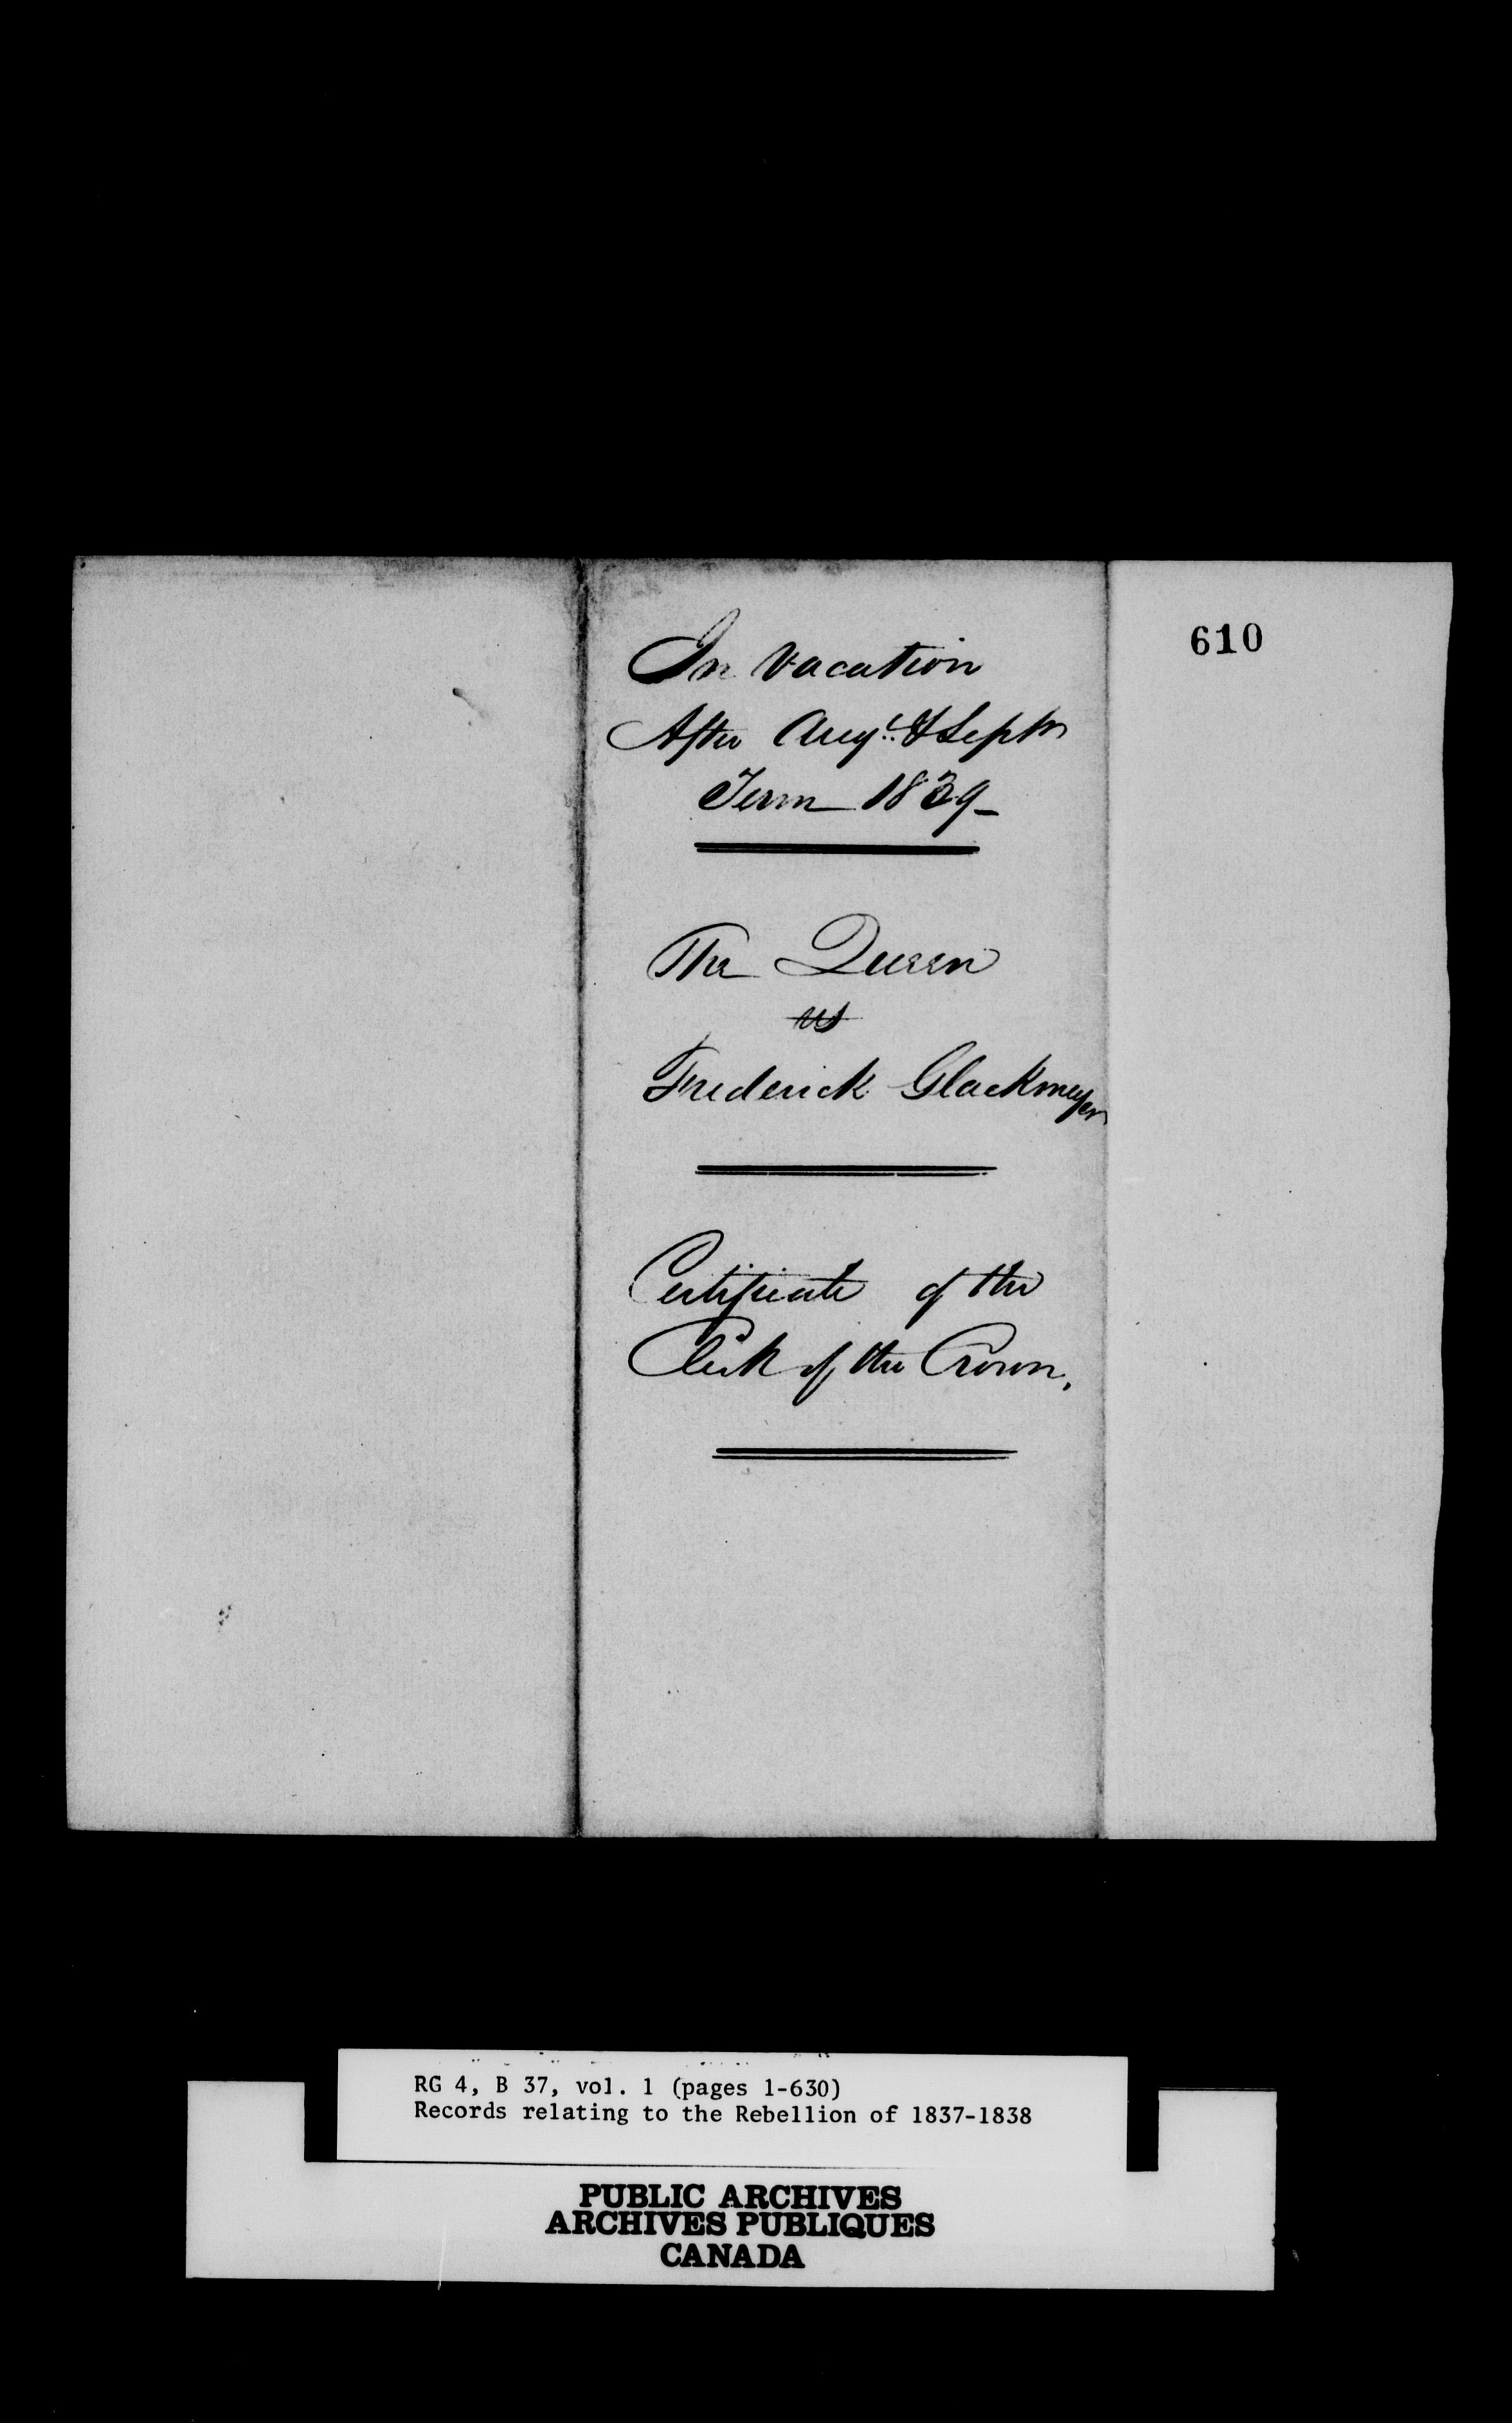 610
In Vacation
After Augt. & Septr
Term 1839-
The Queen
vs
Frederick Glackmeyer
Certificate of the
Clerk of the Crown,
RG 4, B 37, vol. 1 (pages 1-630)
Records relating to the Rebellion of 1837-1838
PUBLIC ARCHIVES
ARCHIVES PUBLIQUES
CANADA